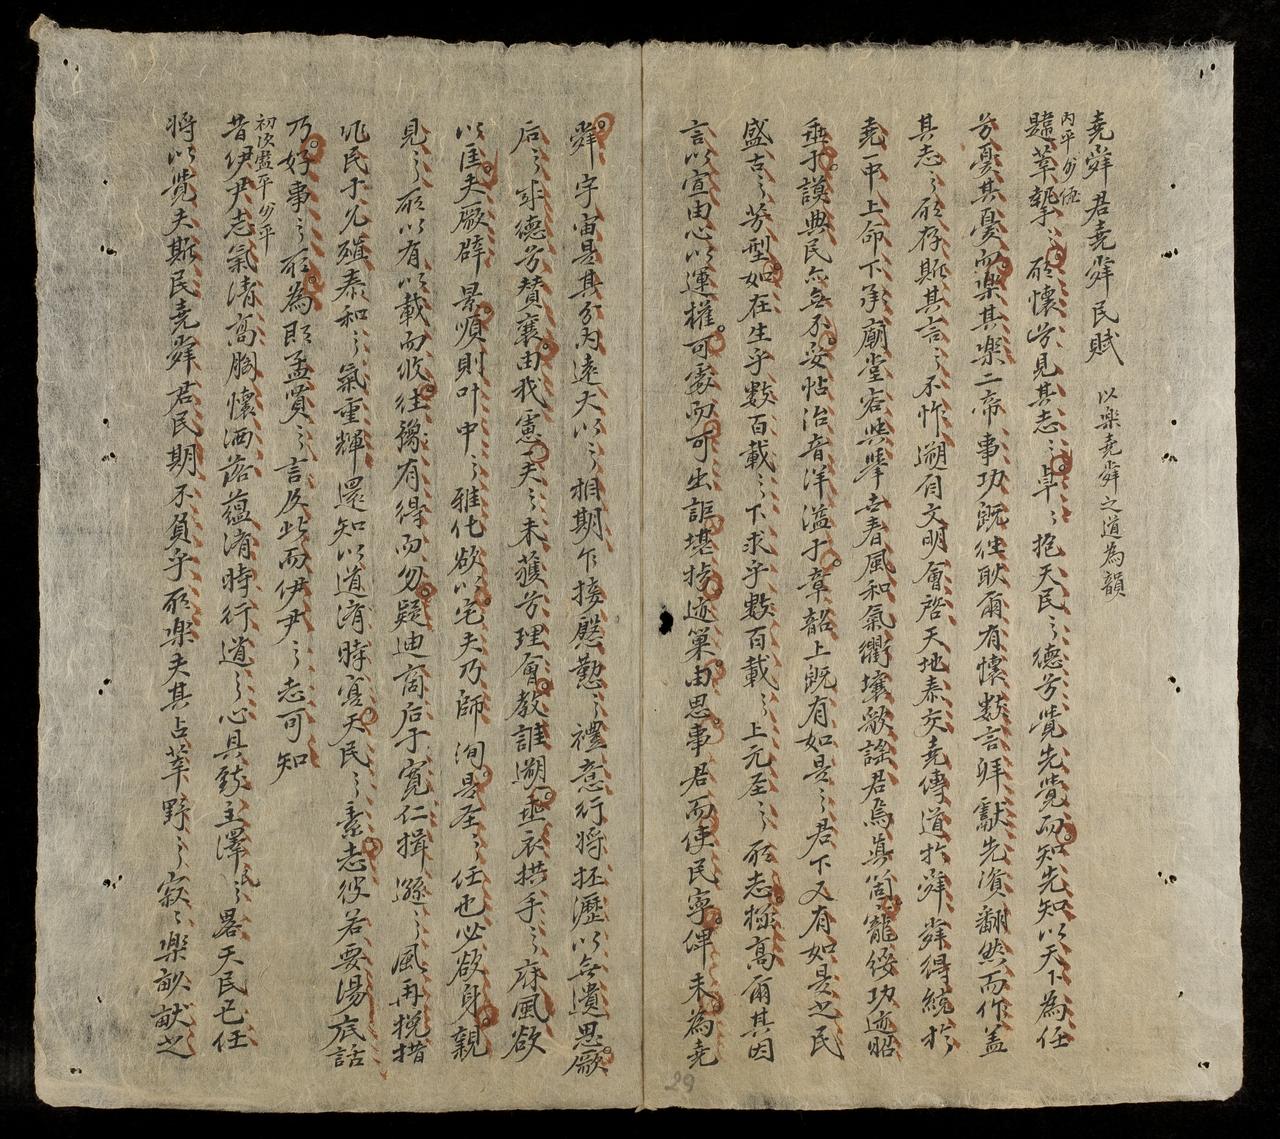 堯舜君堯舜民賦 以樂堯舜之道為韻
內平分極
題莘摯之所懷
方見其志之卓卓抱天民之德芳覺先覺而知先知以天下為任
芳憂其憂而樂其樂二帝事功既往耿爾有懷數言拜獻先資翻然而作蓋
其志之所存斯其言之不怍遡自文明會啓天地泰交堯傳道於舜舜得統於
堯一中上命下承廟堂容與擧世春風和氣衢壤歌謠君焉真簡寵綏功迹昭
垂于謨典民亦無不妥帖治音洋溢于章韶上既有如是之君下又有如是之民
盛古之芳型如在生乎數百載之下求乎數百載之上元至之所志極高爾其因
言以宣由心以運權可處而可出詎堪抄迹巢由思事君而使民寧俾未為堯
舜宇宙是其分內遠大以之相期乍接慇懃之禮意行將抷瀝以無遺思厥
后之求德芳贊襄由我憲夫之未獲芳理會教誰遡垂衣拱手之府風欲
以匡夫厥辟景順則叶中之雅化欲以宅夫乃師洵是圣之任也必欲身親
見之所以有以載而後往豫有得而勿疑迪商后于寬仁揖遜之風再挽措
兆民于允殖泰和之氣重輝還知以道濟時寔天民之素志彼若要湯底話
乃好事之所為即孟賁之言及此而伊尹之志可知
初次盡平分平
昔伊尹志氣清高胸懷洒落蘊濟時行道之心具致主澤民之畧天民己任
將以覺夫斯民堯舜君民期不負乎所樂夫其占莘野之寂之樂畝畎之
29